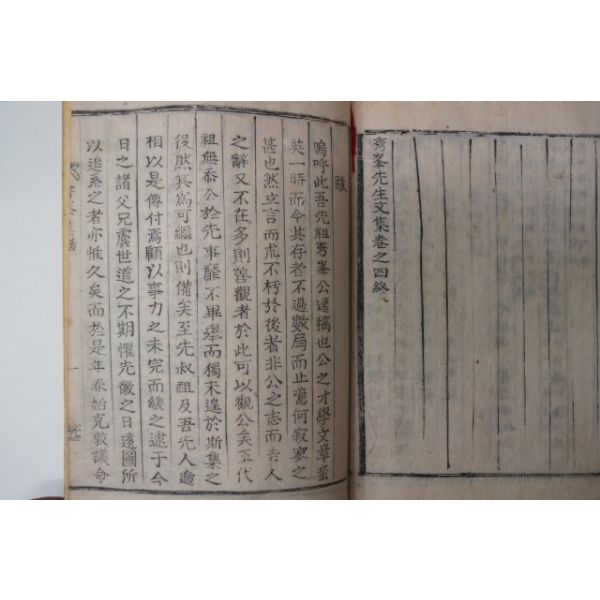 秀峯先生文集卷之四終
跋
嗚呼此吾先祖秀峯公遺稿也公之才學文章蜚
英一時而今其存者不過數局而止噫何寂寥之
甚也然立言而求不朽於後者非公之志而吉人
之辭又不在多則善觀者於此可以觀公矣五代
祖無忝公於先事靡不畢擧而獨未遑於斯集之
役然其爲可繼也則備矣至先叔祖及吾先人遹
相以是傳付焉顧以事力之未完而緩之逮于今
日之諸父兄虞世道之不期懼先徽之日遠圖所
以追系之者亦惟久矣而於是年春始克敦議命
一